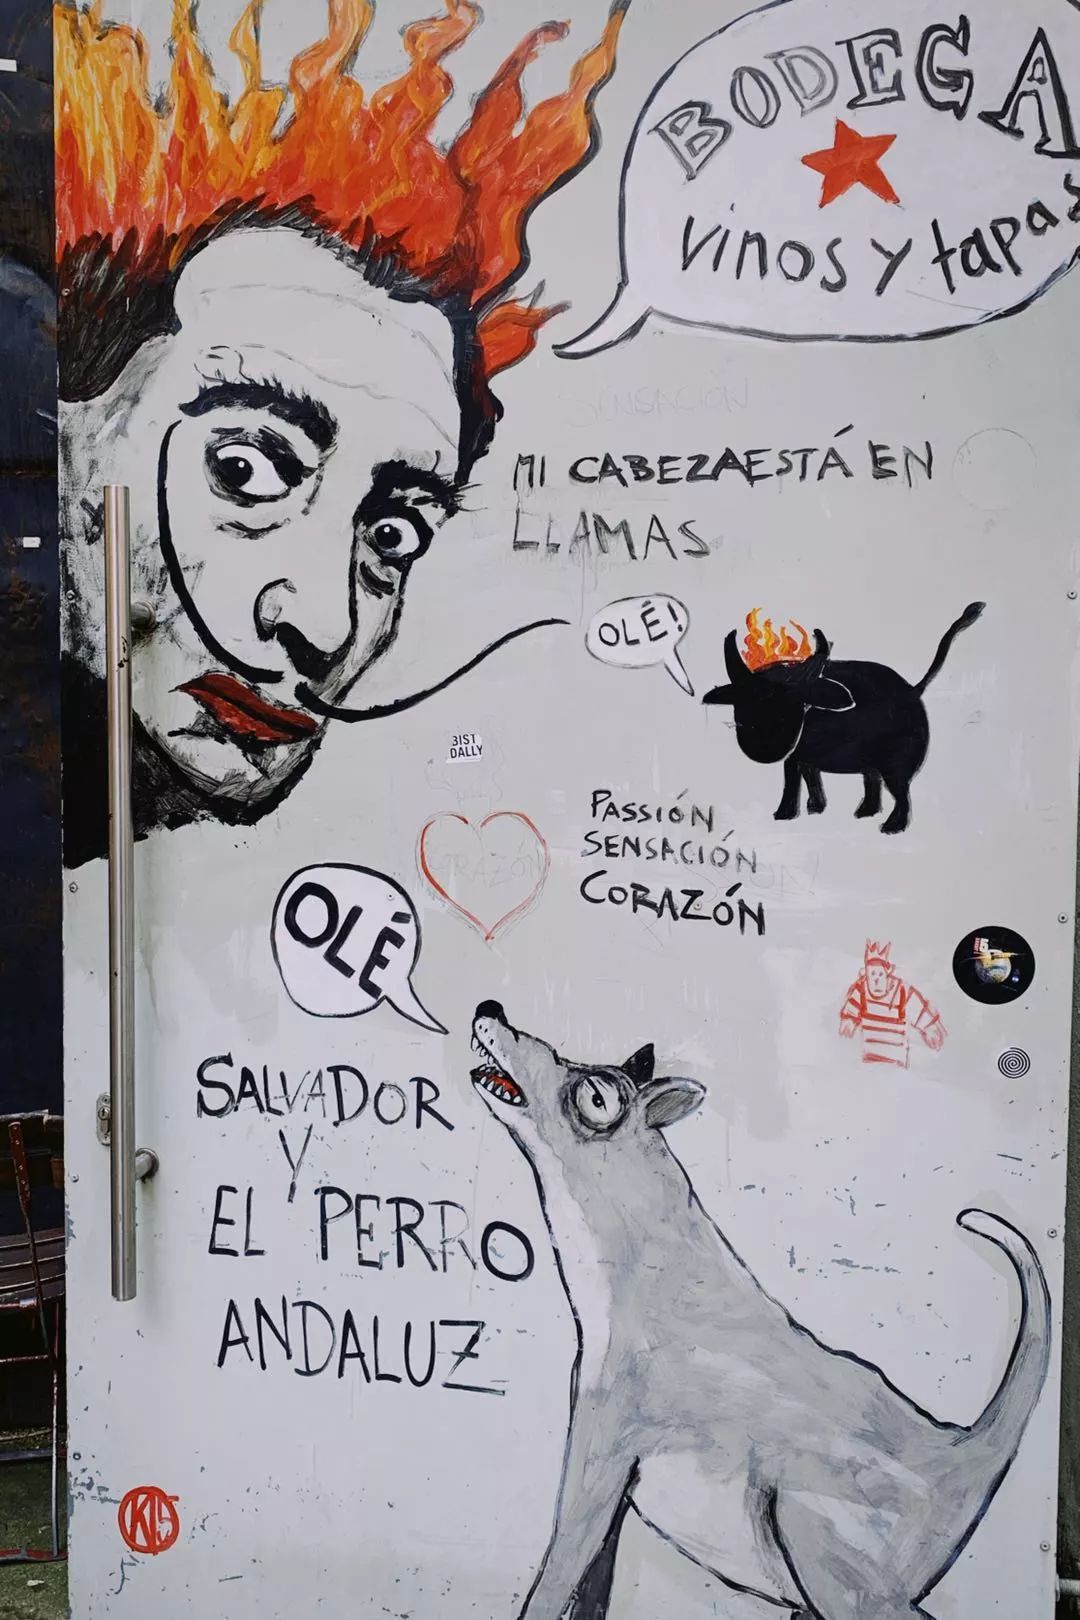 BODEGA
vinos y tapas
SENSACIÓN
MI CABEZA ESTÁ EN
LLAMAS
OLÉ!
BIST
DALLY
CORAZÓN
PASSIÓN
SENSACIÓN
CORAZÓN
OLÉ
SALVADOR
Y
EL PERRO
ANDALUZ